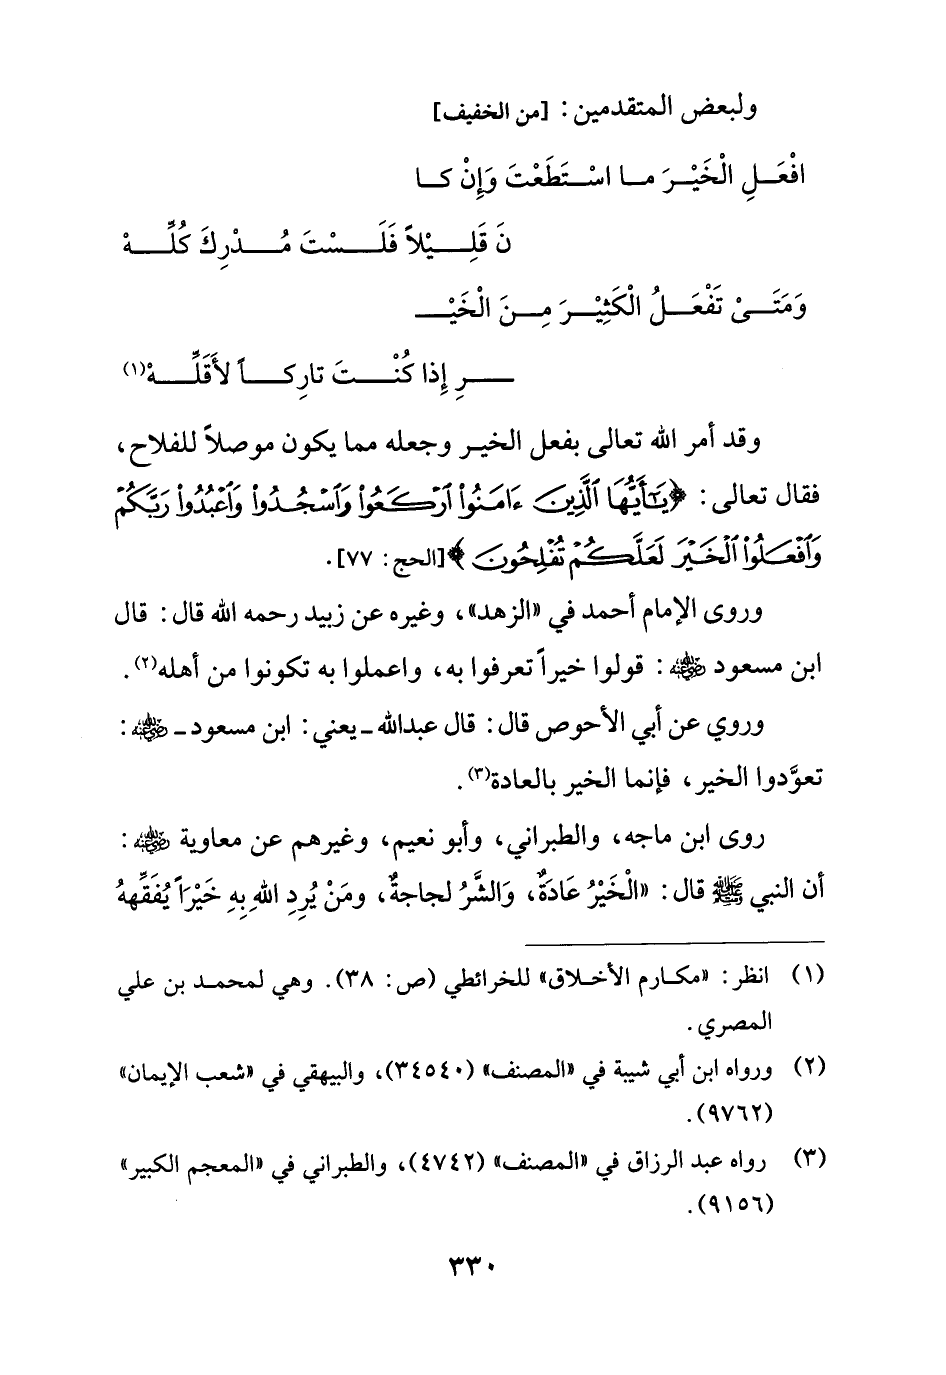 ولبعض المتقدمين: [من الخفيف]
افْعَلِ الْخَيْرَ ما اسْتَطَعْتَ وَإِنْ كا
نَ قَلِيْلاً فَلَسْتَ مُدْرِكَ كُلِّهْ
وَمَتَىْ تَفْعَلُ الْكَثِيْرَ مِنَ الْخَيْـ
ـرِ إِذا كُنْتَ تارِكاً لأَقَلِّهْ(١)
وقد أمر الله تعالى بفعل الخير وجعله مما يكون موصلاً للفلاح،
فقال تعالى: ﴿يَٰٓأَيُّهَا ٱلَّذِينَ ءَامَنُواْ ٱرْكَعُواْ وَٱسْجُدُواْ وَٱعْبُدُواْ رَبَّكُمْ
وَٱفْعَلُواْ ٱلْخَيْرَ لَعَلَّكُمْ تُفْلِحُونَ﴾ [الحج: ٧٧].
وروى الإمام أحمد في «الزهد»، وغيره عن زبيد رحمه الله قال: قال
ابن مسعود رضي الله عنه: قولوا خيراً تعرفوا به، واعملوا به تكونوا من أهله(٢).
وروي عن أبي الأحوص قال: قال عبدالله ـ يعني: ابن مسعود ـ رضي الله عنه:
تعوَّدوا الخير، فإنما الخير بالعادة(٣).
روى ابن ماجه، والطبراني، وأبو نعيم، وغيرهم عن معاوية رضي الله عنه:
أن النبي ﷺ قال: «الْخَيْرُ عَادَةٌ، وَالشَّرُ لجاجةٌ، ومَنْ يُرِدِ اللهِ بِهِ خَيْرَاً يُفَقِّههُ
(١) انظر: «مكارم الأخلاق» للخرائطي (ص: ٣٨). وهي لمحمد بن علي
المصري.
(٢) ورواه ابن أبي شيبة في «المصنف» (٣٤٥٤٠)، والبيهقي في «شعب الإيمان»
(٩٧٦٢).
(٣) رواه عبد الرزاق في «المصنف» (٤٧٤٢)، والطبراني في «المعجم الكبير»
(٩١٥٦).
٣٣٠